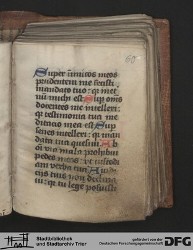 60
Super inimicos meos
prudentem me fecisti
mandato tuo: q
michi est Sup oms
docentes me
q testimonia tua me
ditacio mea est Sup
senes q man
data tua quesiui Ab
om via mala
pedes meos: ut custodi
am verba tua A iudi
ciis tuis non declina
ui: q tu lege posuisti
Stadtbibliothek
und Stadtarchiv Trier
gefördert von der
Deutschen Forschungsgemeinschaft
DFG